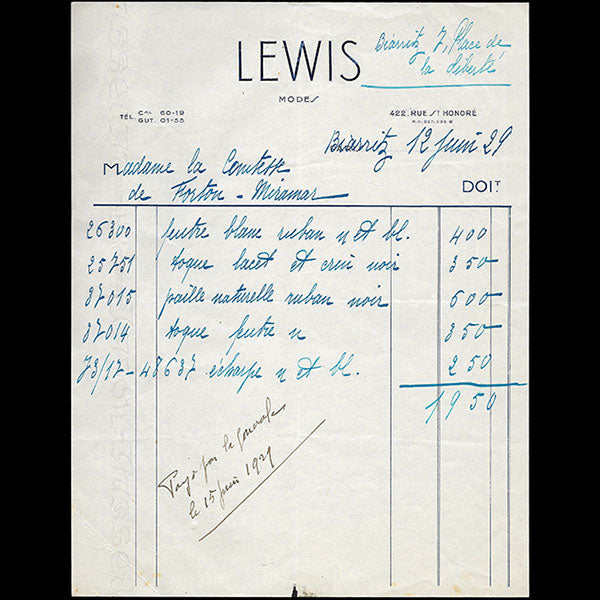 LEWIS
MODES
Biarritz 7, Place de
la Liberté
TÉL. CAR. 60-19
GUT. 01-55
422. RUE ST HONORÉ
Biarritz 12 Juin 29
Madame la Comtesse
de Forton - Miramar
DOIT
26300 feutre blanc ruban n et bl. 400
25751 toque lacet et crin noir 350
37015 paille naturelle ruban noir 600
37014 toque feutre n 350
73/17 - 48637 écharpe n et bl. 250
1950
Payé par la
le 15 juin 1929